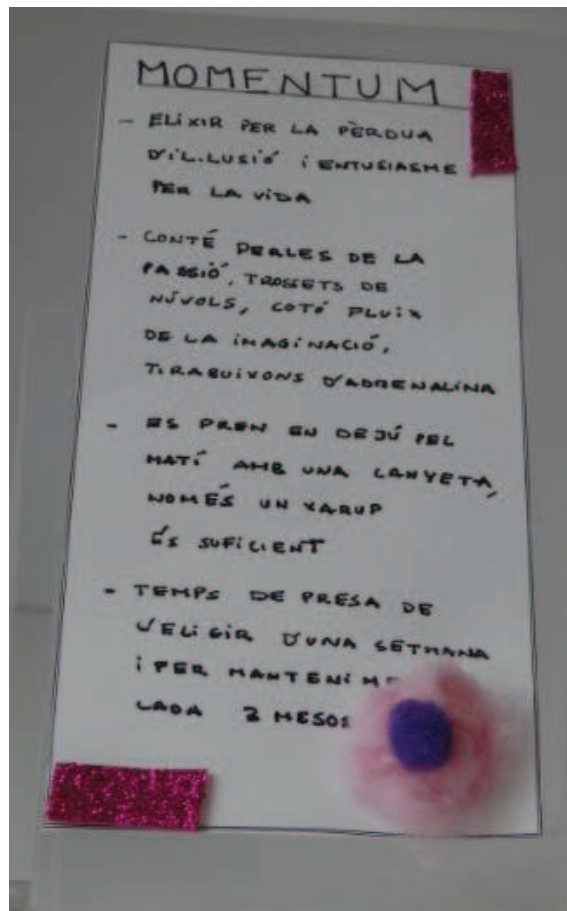 MOMENTUM
- ELIXIR PER LA PÈRDUA
D'IL.LUSIÓ I ENTUSIASME
PER LA VIDA
- CONTÉ PERLES DE LA
PASSIÓ, TROSSETS DE
NÚVOLS, COTÓ FLUIX
DE LA IMAGINACIÓ,
TIRABUIXONS D'ADRENALINA
- ES PREN EN DEJÚ PEL
MATÍ AMB UNA CANYETA,
NOMÉS UN XARUP
ÉS SUFICIENT
- TEMPS DE PRESA DE
L'ELIGIR D'UNA SETMANA
I PER
CADA MESOS